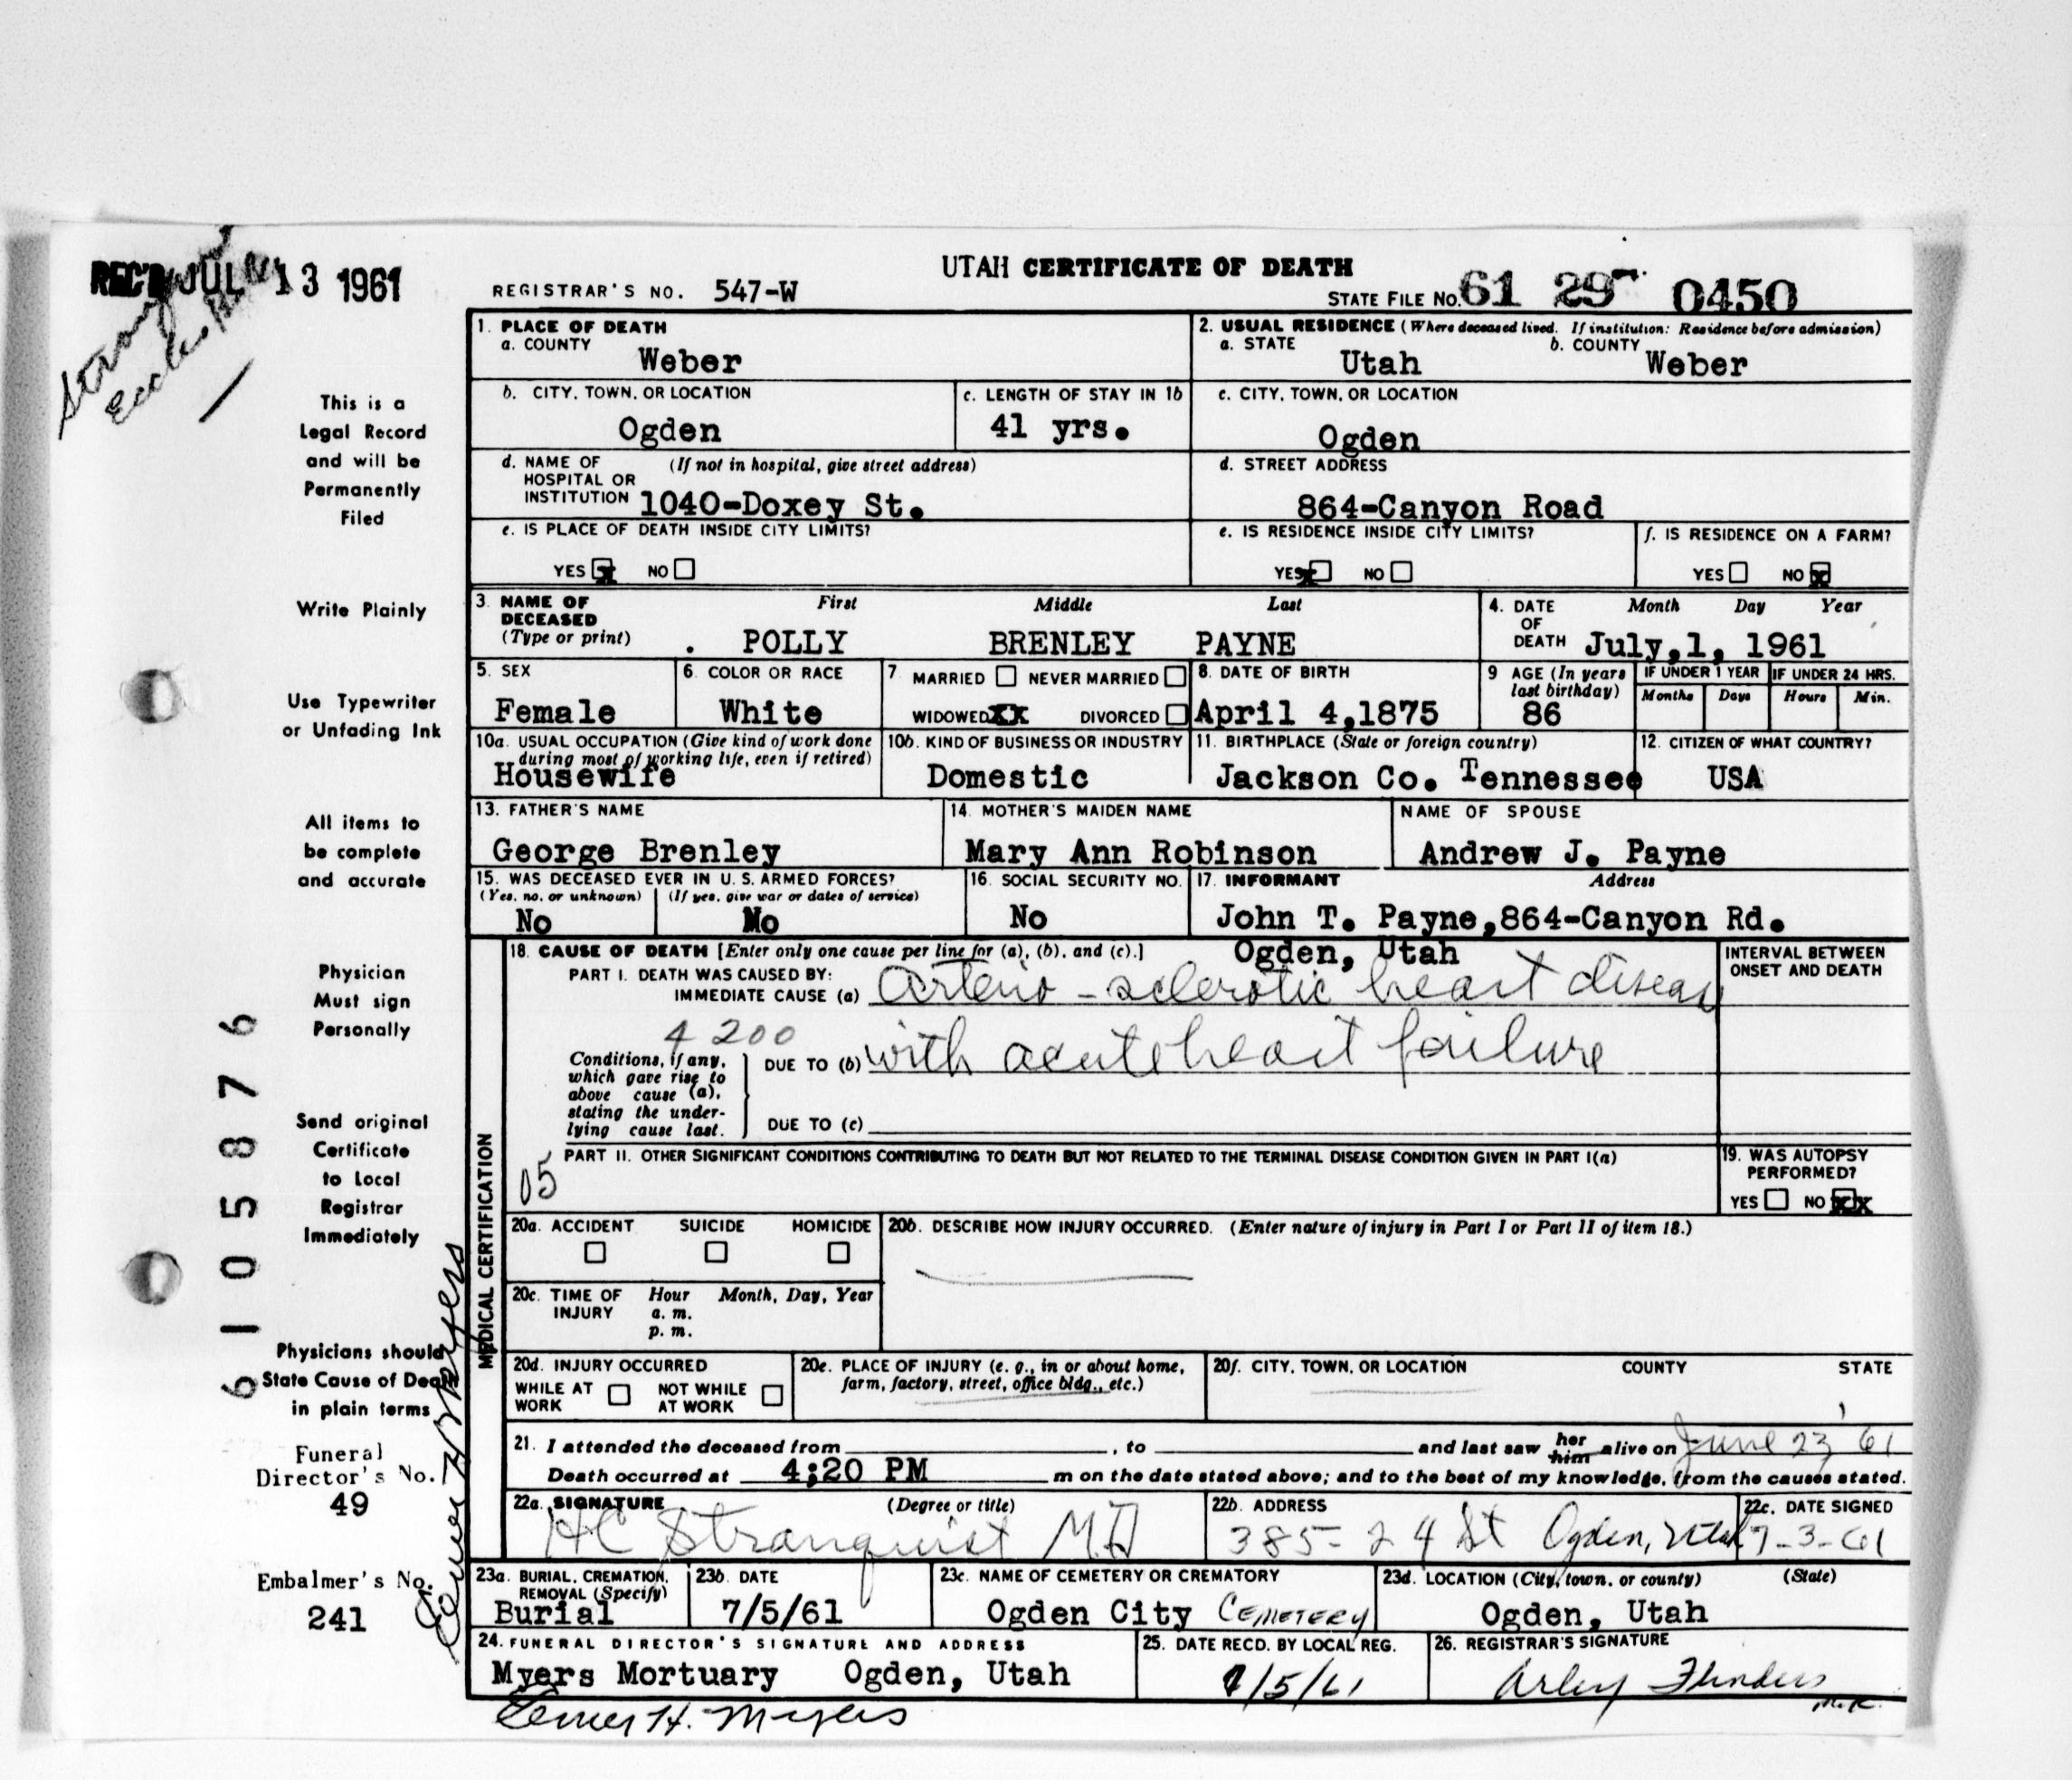 REC'D JUL 13 1961
UTAH CERTIFICATE OF DEATH
REGISTRAR'S NO. 547-W
STATE FILE No. 61 29 0450
This is a
Legal Record
and will be
Permanently
Filed
Write Plainly
Use Typewriter
or Unfading Ink
All items to
be complete
and accurate
Physician
Must sign
Personally
Send original
Certificate
to Local
Registrar
Immediately
Physicians should
State Cause of Death
in plain terms
Funeral
Director's No.
49
Embalmer's No.
241
6105876
1. PLACE OF DEATH
a. COUNTY
Weber
2. USUAL RESIDENCE (Where deceased lived. If institution: Residence before admission)
a. STATE b. COUNTY
Utah Weber
b. CITY, TOWN, OR LOCATION
Ogden
c. LENGTH OF STAY IN 1b
41 yrs.
c. CITY, TOWN, OR LOCATION
Ogden
d. NAME OF (If not in hospital, give street address)
HOSPITAL OR
INSTITUTION 1040-Doxey St.
d. STREET ADDRESS
864-Canyon Road
e. IS PLACE OF DEATH INSIDE CITY LIMITS?
YES x NO
e. IS RESIDENCE INSIDE CITY LIMITS?
YES x NO
f. IS RESIDENCE ON A FARM?
YES NO x
3. NAME OF First Middle Last
DECEASED
(Type or print) . POLLY BRENLEY PAYNE
4. DATE Month Day Year
OF
DEATH July,1, 1961
5. SEX
Female
6. COLOR OR RACE
White
7 MARRIED NEVER MARRIED
WIDOWED XX DIVORCED
8. DATE OF BIRTH
April 4,1875
9 AGE (In years
last birthday)
86
IF UNDER 1 YEAR
Months Days
IF UNDER 24 HRS.
Hours Min.
10a. USUAL OCCUPATION (Give kind of work done
during most of working life, even if retired)
Housewife
10b. KIND OF BUSINESS OR INDUSTRY
Domestic
11. BIRTHPLACE (State or foreign country)
Jackson Co. Tennessee
12. CITIZEN OF WHAT COUNTRY?
USA
13. FATHER'S NAME
George Brenley
14. MOTHER'S MAIDEN NAME
Mary Ann Robinson
NAME OF SPOUSE
Andrew J. Payne
15. WAS DECEASED EVER IN U. S. ARMED FORCES?
(Yes, no, or unknown) (If yes, give war or dates of service)
No No
16. SOCIAL SECURITY NO.
No
17. INFORMANT Address
John T. Payne,864-Canyon Rd.
Ogden, Utah
MEDICAL CERTIFICATION
18. CAUSE OF DEATH [Enter only one cause per line for (a), (b), and (c).]
PART I. DEATH WAS CAUSED BY:
IMMEDIATE CAUSE (a) Arterio-sclerotic heart disease
4200
Conditions, if any,
which gave rise to
above cause (a),
stating the under-
lying cause last.
DUE TO (b) with acute heart failure
DUE TO (c)
INTERVAL BETWEEN
ONSET AND DEATH
PART II. OTHER SIGNIFICANT CONDITIONS CONTRIBUTING TO DEATH BUT NOT RELATED TO THE TERMINAL DISEASE CONDITION GIVEN IN PART I(a)
05
19. WAS AUTOPSY
PERFORMED?
YES NO XX
20a. ACCIDENT SUICIDE HOMICIDE
20b. DESCRIBE HOW INJURY OCCURRED. (Enter nature of injury in Part I or Part II of item 18.)
20c. TIME OF Hour Month, Day, Year
INJURY a. m.
p. m.
20d. INJURY OCCURRED
WHILE AT NOT WHILE
WORK AT WORK
20e. PLACE OF INJURY (e. g., in or about home,
farm, factory, street, office bldg., etc.)
20f. CITY, TOWN, OR LOCATION COUNTY STATE
21. I attended the deceased from , to and last saw her him alive on June 23 '61
Death occurred at 4:20 PM m on the date stated above; and to the best of my knowledge, from the causes stated.
22a. SIGNATURE (Degree or title)
HC Stranquist M.D
22b. ADDRESS
385-24 St Ogden, Utah
22c. DATE SIGNED
7-3-61
23a. BURIAL, CREMATION,
REMOVAL (Specify)
Burial
23b. DATE
7/5/61
23c. NAME OF CEMETERY OR CREMATORY
Ogden City CEMETERY
23d. LOCATION (City, town, or county) (State)
Ogden, Utah
24. FUNERAL DIRECTOR'S SIGNATURE AND ADDRESS
Myers Mortuary Ogden, Utah
25. DATE RECD. BY LOCAL REG.
7/5/61
26. REGISTRAR'S SIGNATURE
Arley Flinders
M.K.
H. Myers
H Myers